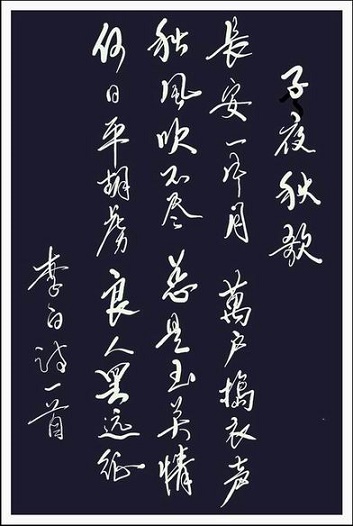 子夜秋歌
長安一片月 萬户搗衣声
秋風吹不尽 总是玉关情
何日平胡虏 良人罢远征
李白诗一首